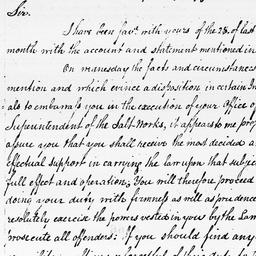 Sir.
I have been fav.d with yours of the 28. of last
month with the account and statement mentioned in
On wanesday the facts and circumstances
mention and which evince a disposition in certain In
als to embarrass you in the execution of your Office of
Superintendent of the Salt-Works, it appears to me prop
assure you that you shall receive the most decided a
effectual support in carrying the law upon that subjec
full effect and operation. You will therefore proceed
doing your duty with firmness as well as prudence
resolutely exercise the powers vested in you by the Law
prosecute all offenders: If you should find any